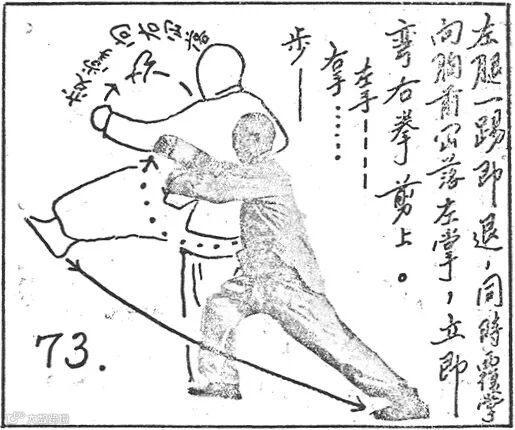 左腿一踢即退，同時覆掌
向胸前冚落左掌，立即
彎右拳剪上。
左手----
右手.....
步——
向右
73.